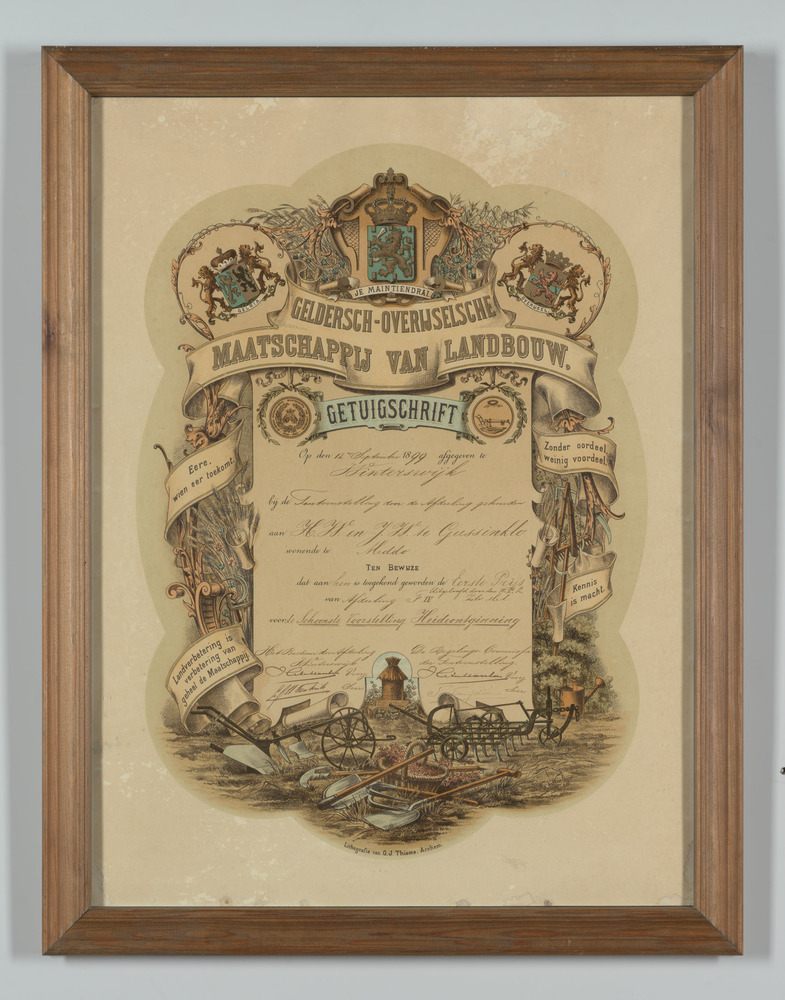 JE MAINTIENDRAI
GELDERSCH-OVERIJSELSCHE
MAATSCHAPPIJ VAN LANDBOUW.
GETUIGSCHRIFT
Eere,
wien eer toekomt.
Zonder oordeel
weinig voordeel.
Op den 12 September 1899 afgegeven te
Winterswijk
bij de Tentoonstelling door de Afdeeling gehouden
aan H. W. en J. W. te Gussinklo
wonende te Meddo
TEN BEWIJZE
dat aan hen is toegekend geworden de Eerste Prijs
van Afdeeling
voor de Schoonste Voorstelling Heideontginning
Kennis
is macht.
Landverbetering is
verbetering van
geheel de Maatschappij.
Het Bestuur der Afdeeling
Winterswijk
De Regelings Commissie
der Tentoonstelling
Lithografie van G. J. Thieme, Arnhem.